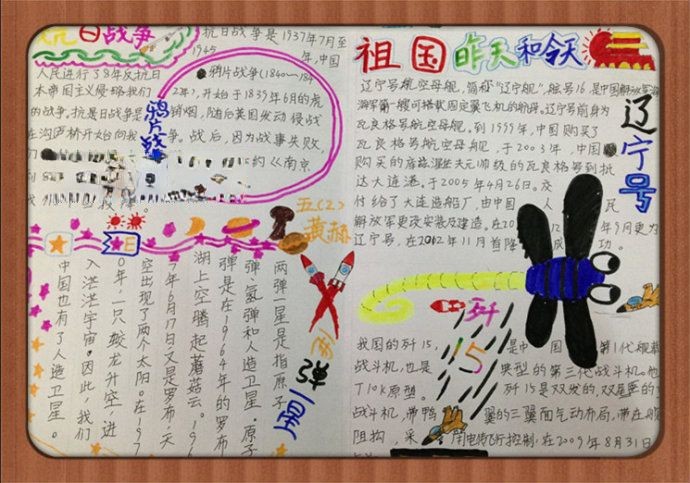 抗日战争
抗日战争是1937年7月至
1945年,中国
人民进行了8年反抗日
本帝国主义侵略我们
的战争。抗是日战争是
在沟庐桥开始向我
鸦片战争
鸦片战争(1840～184
2年),开始于1839年6月的虎
销烟,随后英国发动侵战
争。战后,因为战事失败,
约《南京
五(2)
黄赫
两弹一星
两弹一星是指原子
弹、氢弹和人造卫星。原子
弹是在1964年的罗布
湖上空腾起蘑菇云。196
7年6月17日又是罗布,天
空出现了两个太阳。在197
0年,一只蛟龙升空,进
入茫茫宇宙。因此,我们
中国也有了人造卫星。
祖国昨天和今天
辽宁号
辽宁号航空母舰,简称"辽宁舰",舷号16是中国解放军海
海军第一艘可搭载固定翼飞机的舰艇。辽宁号前身为
瓦良格号航空母舰。到1999年,中国购买了
瓦良格号航空母舰,于2003年,中国
购买的库兹涅佐夫元帅级的瓦良格号到抵
达大连港。于2005年4月26日。交
付给了大连造船厂,由中国人民
解放军更改安装及建造。在20 年9月更为
辽宁号,在2012年11月首降成功。
歼15
我国的歼15,是中国第1代舰载
战斗机,也是典型的第三代战斗机。他
T10K原型。歼15是双发的,双垂尾的
战斗机,带鸭翼的三翼面气动布局,带在舰
阻构,采用电传飞行控制,在2009年8月31日